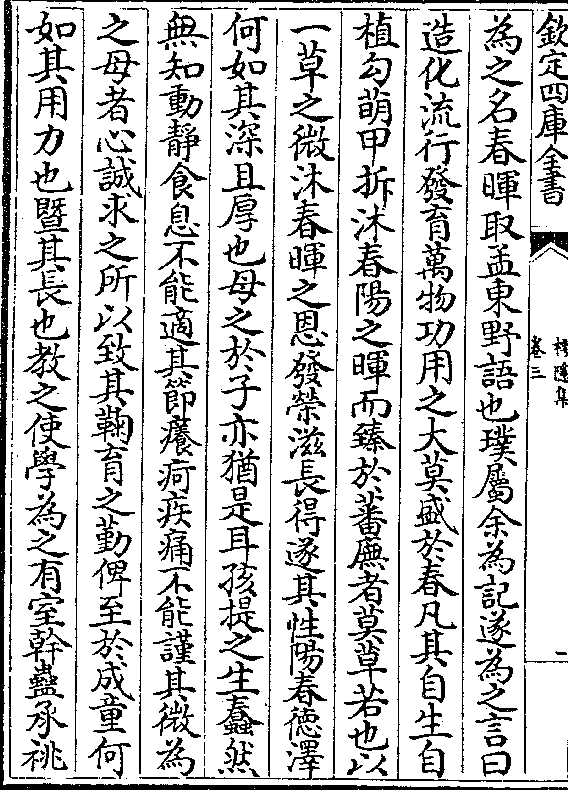 欽定四庫全書
樗隱集
卷三
二
為之名春暉取孟東野語也璞屬余為記遂為之言曰
造化流行發育萬物功用之大莫盛於春凡其自生自
植勾萌甲拆沐春陽之暉而臻於蕃廡者莫草若也以
一草之微沐春暉之恩發榮滋長得遂其性陽春德澤
何如其深且厚也母之於子亦猶是耳孩提之生蠢然
無知動靜食息不能適其節癢疴疾痛不能謹其微為
之母者心誠求之所以致其鞠育之勤俾至於成童何
如其用力也暨其長也教之使學為之有室幹蠱承祧